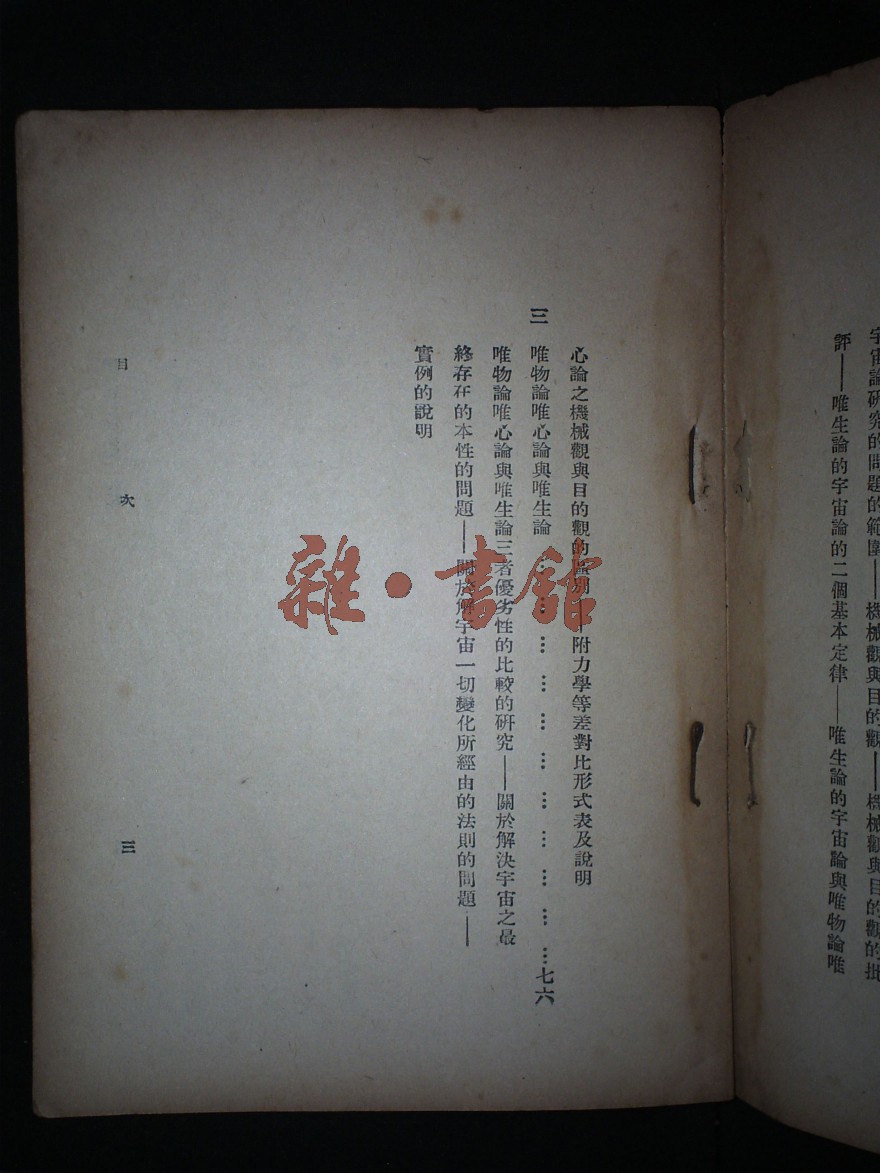 宇宙論研究的問題的範圍——機械觀與目的觀——機械觀與目的觀的批
評——唯生論的宇宙論的二個基本定律——唯生論的宇宙論與唯物論唯
心論之機械觀與目的觀的區別——附力學等差對比形式表及說明
三 唯物論唯心論與唯生論……………………………七六
唯物論唯心論與唯生論三者優劣性的比較的研究——關於解決宇宙之最
終存在的本性的問題——關於解宇宙一切變化所經由的法則的問題——
實例的說明
目次 三
雜·書館